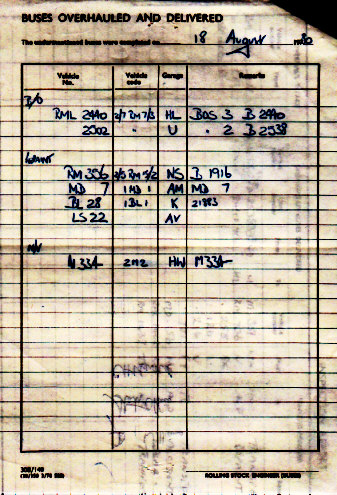 BUSES OVERHAULED AND DELIVERED
The undermentioned buses were completed on 18 August 1980
Vehicle No. Vehicle code Garage Remarks
B/O
RML 2440 2/7 RM 7/3 HL BOS 3 B 2440
2502 " U " 2 B 2538
RM 356 2/5 RM 5/2 NS B 1916
MD 7 1 MD 1 AM MD 7
BL 28 1 BL 1 K 21883
LS 22 AV
M 334 2M2 HW M 334
ROLLING STOCK ENGINEER (BUSES)